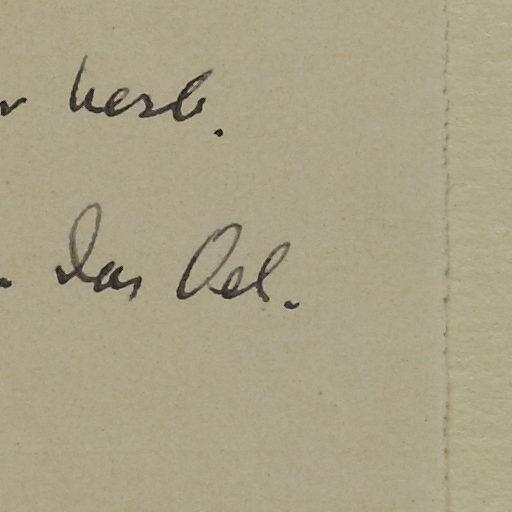 herb.
. Das Oel.